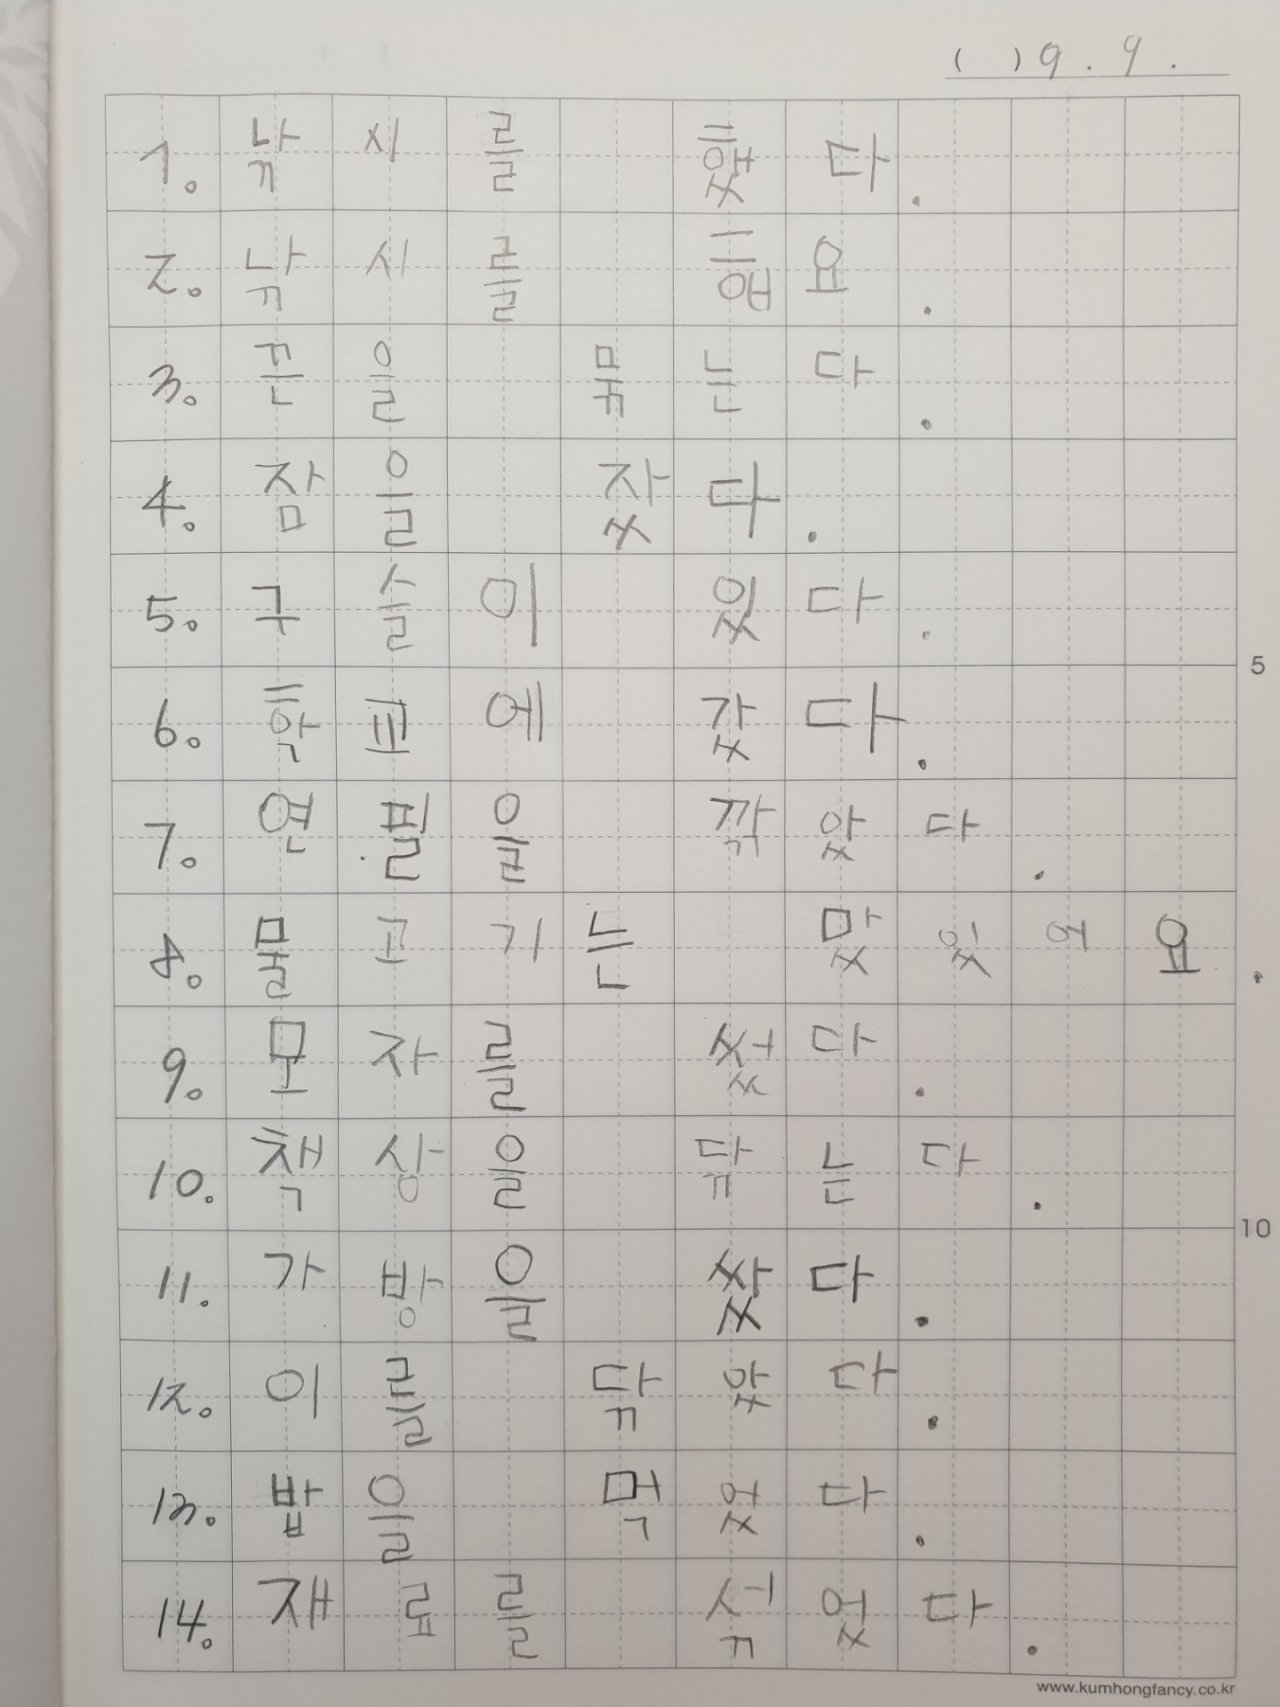 ( )9. 9.
1. 낚시를 했다.
2. 낚시를 해요.
3. 끈을 묶는다.
4. 잠을 잤다.
5. 구슬이 있다.
6. 학교에 갔다.
7. 연필을 깎았다.
8. 물고기는 맜있어요.
9. 모자를 썼다.
10. 책상을 닦는다.
11. 가방을 쌌다.
12. 이를 닦았다.
13. 밥을 먹었다.
14. 재료를 섞었다.
5
10
www.kumhongfancy.co.kr